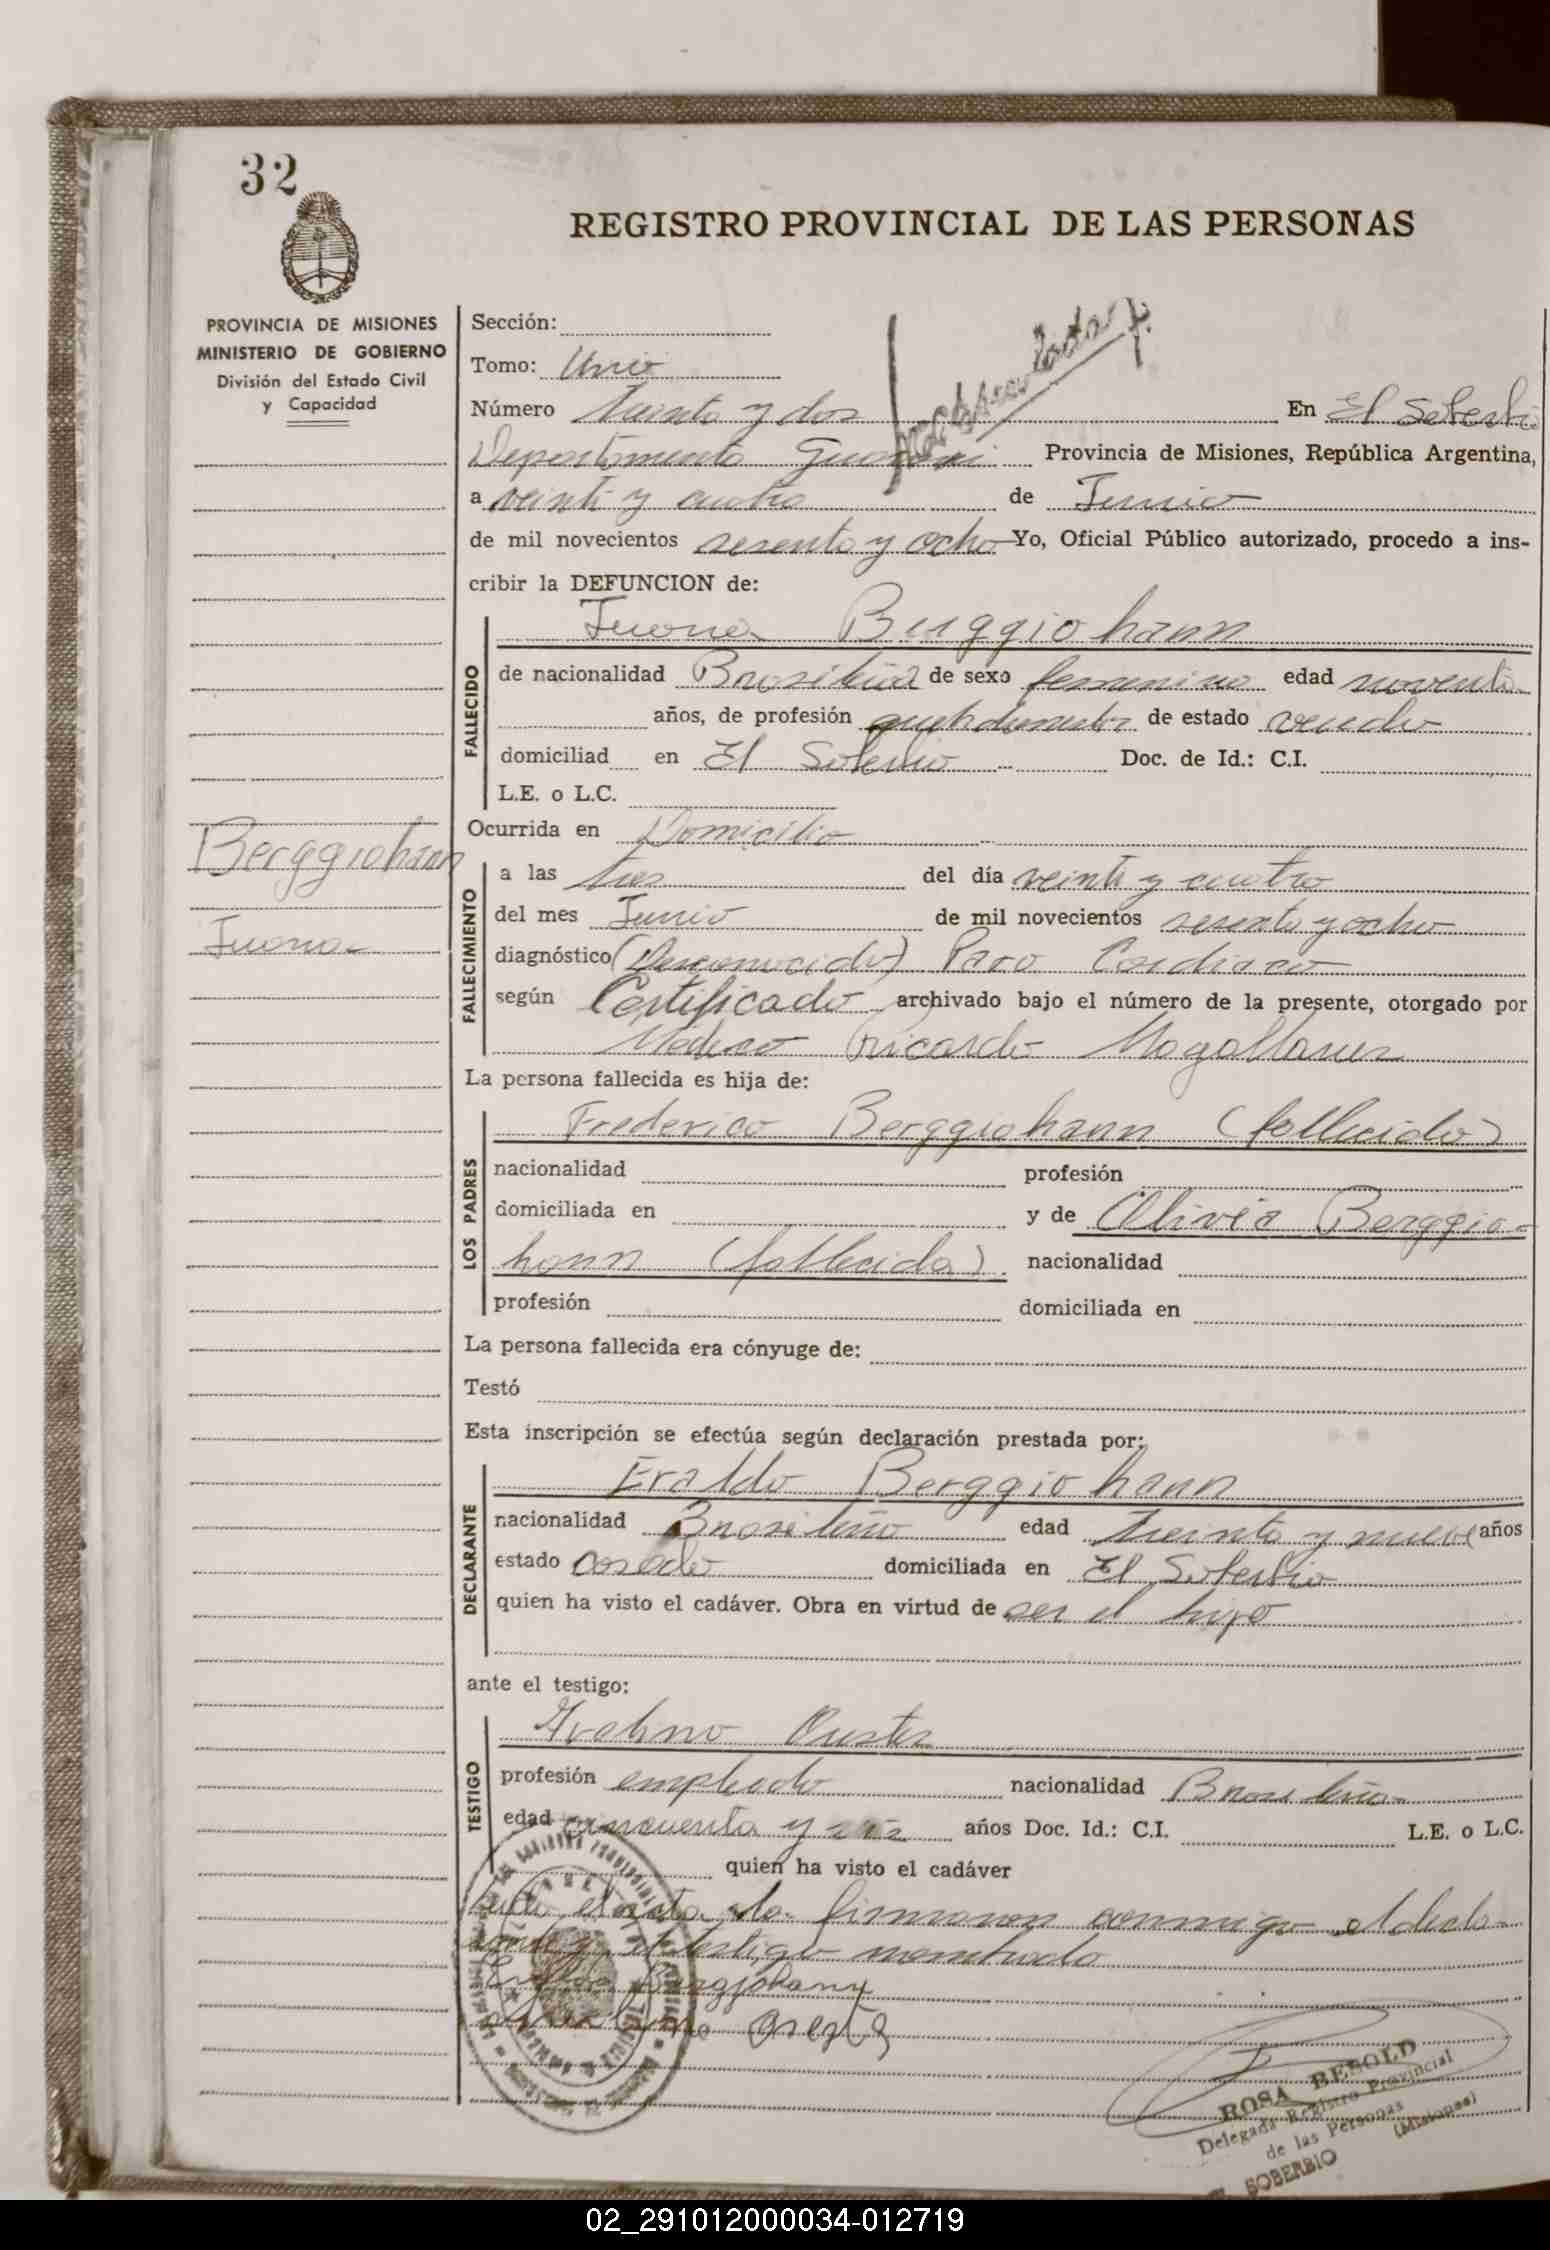 32
REGISTRO PROVINCIAL DE LAS PERSONAS
PROVINCIA DE MISIONES
MINISTERIO DE GOBIERNO
División del Estado Civil
y Capacidad
Sección:
Tomo: Uno
Número treinta y dos En El Soberbio
Departamento Guaraní Provincia de Misiones, República Argentina,
a veinti y cuatro de Junio
de mil novecientos sesenta y ocho Yo, Oficial Público autorizado, procedo a ins-
cribir la DEFUNCION de:
FALLECIDO
Juana Berggiohann
de nacionalidad Brasileña de sexo femenino edad noventa
años, de profesión de estado viuda
domiciliad en El Soberbio Doc. de Id.: C.I.
L.E. o L.C.
Ocurrida en Domicilio
Berggiohann
Juana
FALLECIMIENTO
a las tres del día veinti y cuatro
del mes Junio de mil novecientos sesenta y ocho
diagnóstico (Desconocido) Paro Cardiaco
según Certificado archivado bajo el número de la presente, otorgado por
Médico Ricardo Magallanes
La persona fallecida es hija de:
LOS PADRES
Frederico Berggiohann (fallecido)
nacionalidad profesión
domiciliada en y de Olivia Berggio-
hann (fallecida) nacionalidad
profesión domiciliada en
La persona fallecida era cónyuge de:
Testó
Esta inscripción se efectúa según declaración prestada por:
DECLARANTE
Eraldo Berggiohann
nacionalidad Brasileño edad treinta y nueve años
estado casado domiciliada en El Soberbio
quien ha visto el cadáver. Obra en virtud de ser el hijo
ante el testigo:
TESTIGO
profesión empleado nacionalidad Brasileño
edad cincuenta y años Doc. Id.: C.I. L.E. o L.C.
quien ha visto el cadáver
Leida el acta la firmaron conmigo el decla-
rante y el testigo nombrado
ROSA BEBOLD
Delegada Registro Provincial
de las Personas
SOBERBIO (Misiones)
02_291012000034-012719